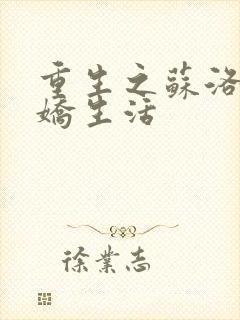 重生之蘇洛
嬌生活
徐業志